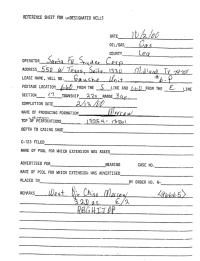 REFERENCE SHEET FOR UNDESIGNATED WELLS
DATE 10/2/00
OIL/GAS Gas
COUNTY Lea
OPERATOR Santa Fe Snyder Corp
ADDRESS 550 W Texas, Suite 1330 Midland Tx 79701
LEASE NAME, WELL NO. Gaucho Unit
FOOTAGE LOCATION 660 FROM THE S LINE AND 660 FROM THE E LINE
SECTION 17 TOWNSHIP 22S RANGE 34E
COMPLETION DATE 2/13/00
NAME OF PRODUCING FORMATION Morrow
TOP OF PERFORATIONS
DEPTH TO CASING SHOE
C-123 FILED
NAME OF POOL FOR WHICH EXTENSION WAS ASKED
ADVERTISED FOR HEARING CASE NO.
NAME OF POOL FOR WHICH EXTENSION WAS ADVERTISED
PLACED IN BY ORDER NO. R-
REMARKS West Morrow
320 ac E/2
ABGHIJOP